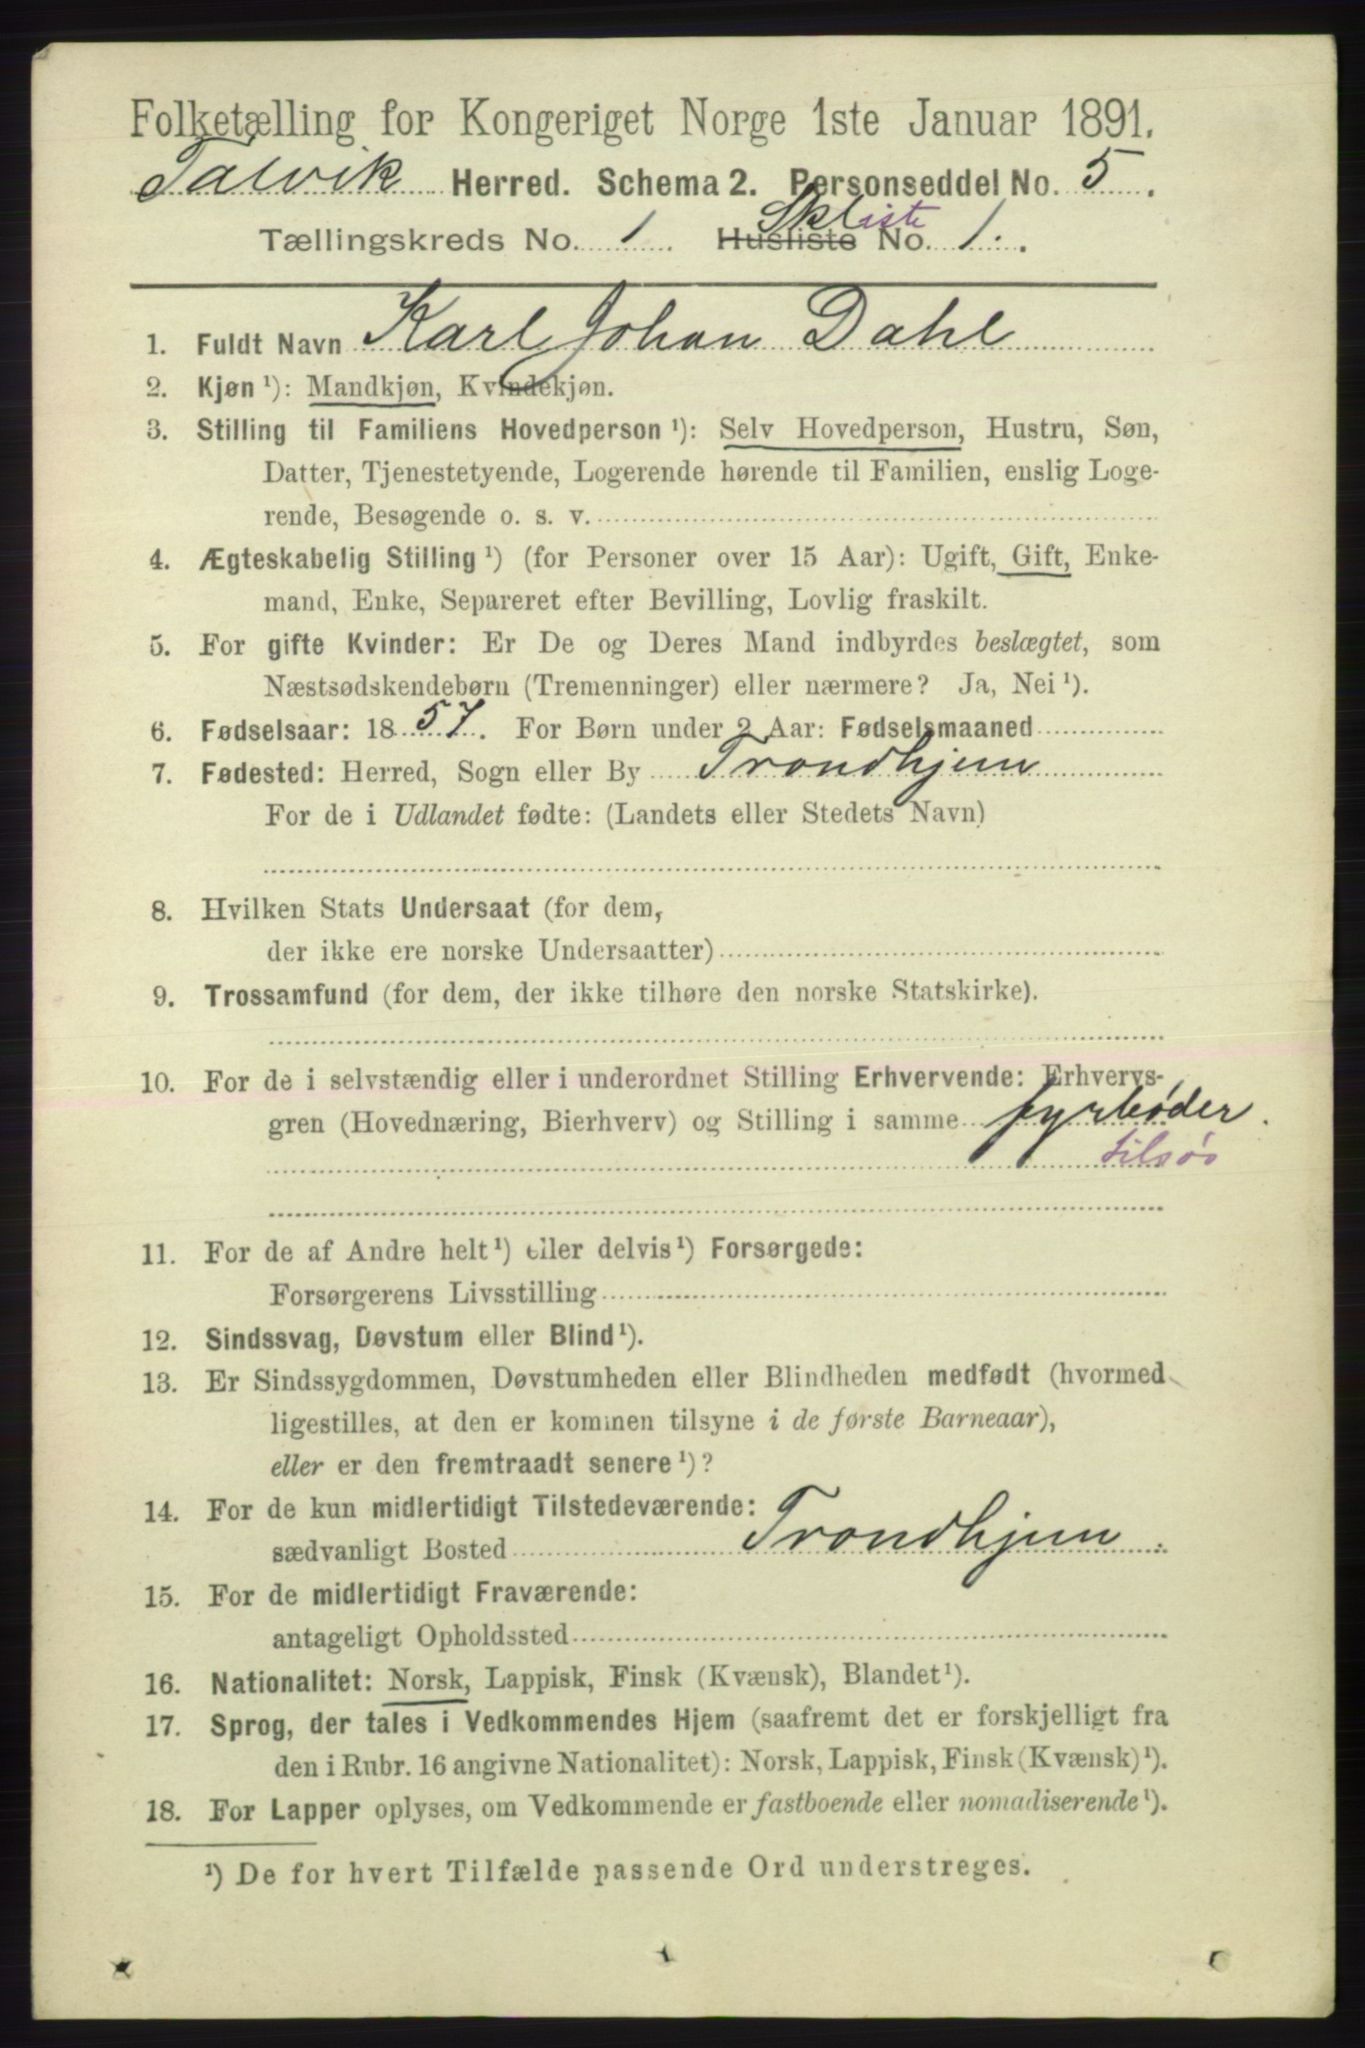 Folketælling for Kongeriget Norge 1ste Januar 1891.
Talvik Herred. Schema 2. Personseddel No. 5.
Tællingskreds No. 1 Husliste Skbliste No. 1.
1. Fuldt Navn Karl Johan Dahl
2. Kjøn ¹): Mandkjøn, Kvindekjøn.
3. Stilling til Familiens Hovedperson ¹): Selv Hovedperson, Hustru, Søn,
Datter, Tjenestetyende, Logerende hørende til Familien, enslig Loge-
rende, Besøgende o. s. v.
4. Ægteskabelig Stilling ¹) (for Personer over 15 Aar): Ugift, Gift, Enke-
mand, Enke, Separeret efter Bevilling, Lovlig fraskilt.
5. For gifte Kvinder: Er De og Deres Mand indbyrdes beslægtet, som
Næstsødskendebørn (Tremenninger) eller nærmere? Ja, Nei ¹).
6. Fødselsaar: 1857. For Børn under 2 Aar: Fødselsmaaned
7. Fødested: Herred, Sogn eller By Trondhjem
For de i Udlandet fødte: (Landets eller Stedets Navn)
8. Hvilken Stats Undersaat (for dem,
der ikke ere norske Undersaatter)
9. Trossamfund (for dem, der ikke tilhøre den norske Statskirke).
10. For de i selvstændig eller i underordnet Stilling Erhvervende: Erhvervs-
gren (Hovednæring, Bierhverv) og Stilling i samme fyrbøder.
tilsøs
11. For de af Andre helt ¹) eller delvis ¹) Forsørgede:
Forsørgerens Livsstilling
12. Sindssvag, Døvstum eller Blind ¹).
13. Er Sindssygdommen, Døvstumheden eller Blindheden medfødt (hvormed
ligestilles, at den er kommen tilsyne i de første Barneaar),
eller er den fremtraadt senere ¹)?
14. For de kun midlertidigt Tilstedeværende:
sædvanligt Bosted Trondhjem.
15. For de midlertidigt Fraværende:
antageligt Opholdssted
16. Nationalitet: Norsk, Lappisk, Finsk (Kvænsk), Blandet ¹).
17. Sprog, der tales i Vedkommendes Hjem (saafremt det er forskjelligt fra
den i Rubr. 16 angivne Nationalitet): Norsk, Lappisk, Finsk (Kvænsk) ¹).
18. For Lapper oplyses, om Vedkommende er fastboende eller nomadiserende ¹).
¹) De for hvert Tilfælde passende Ord understreges.